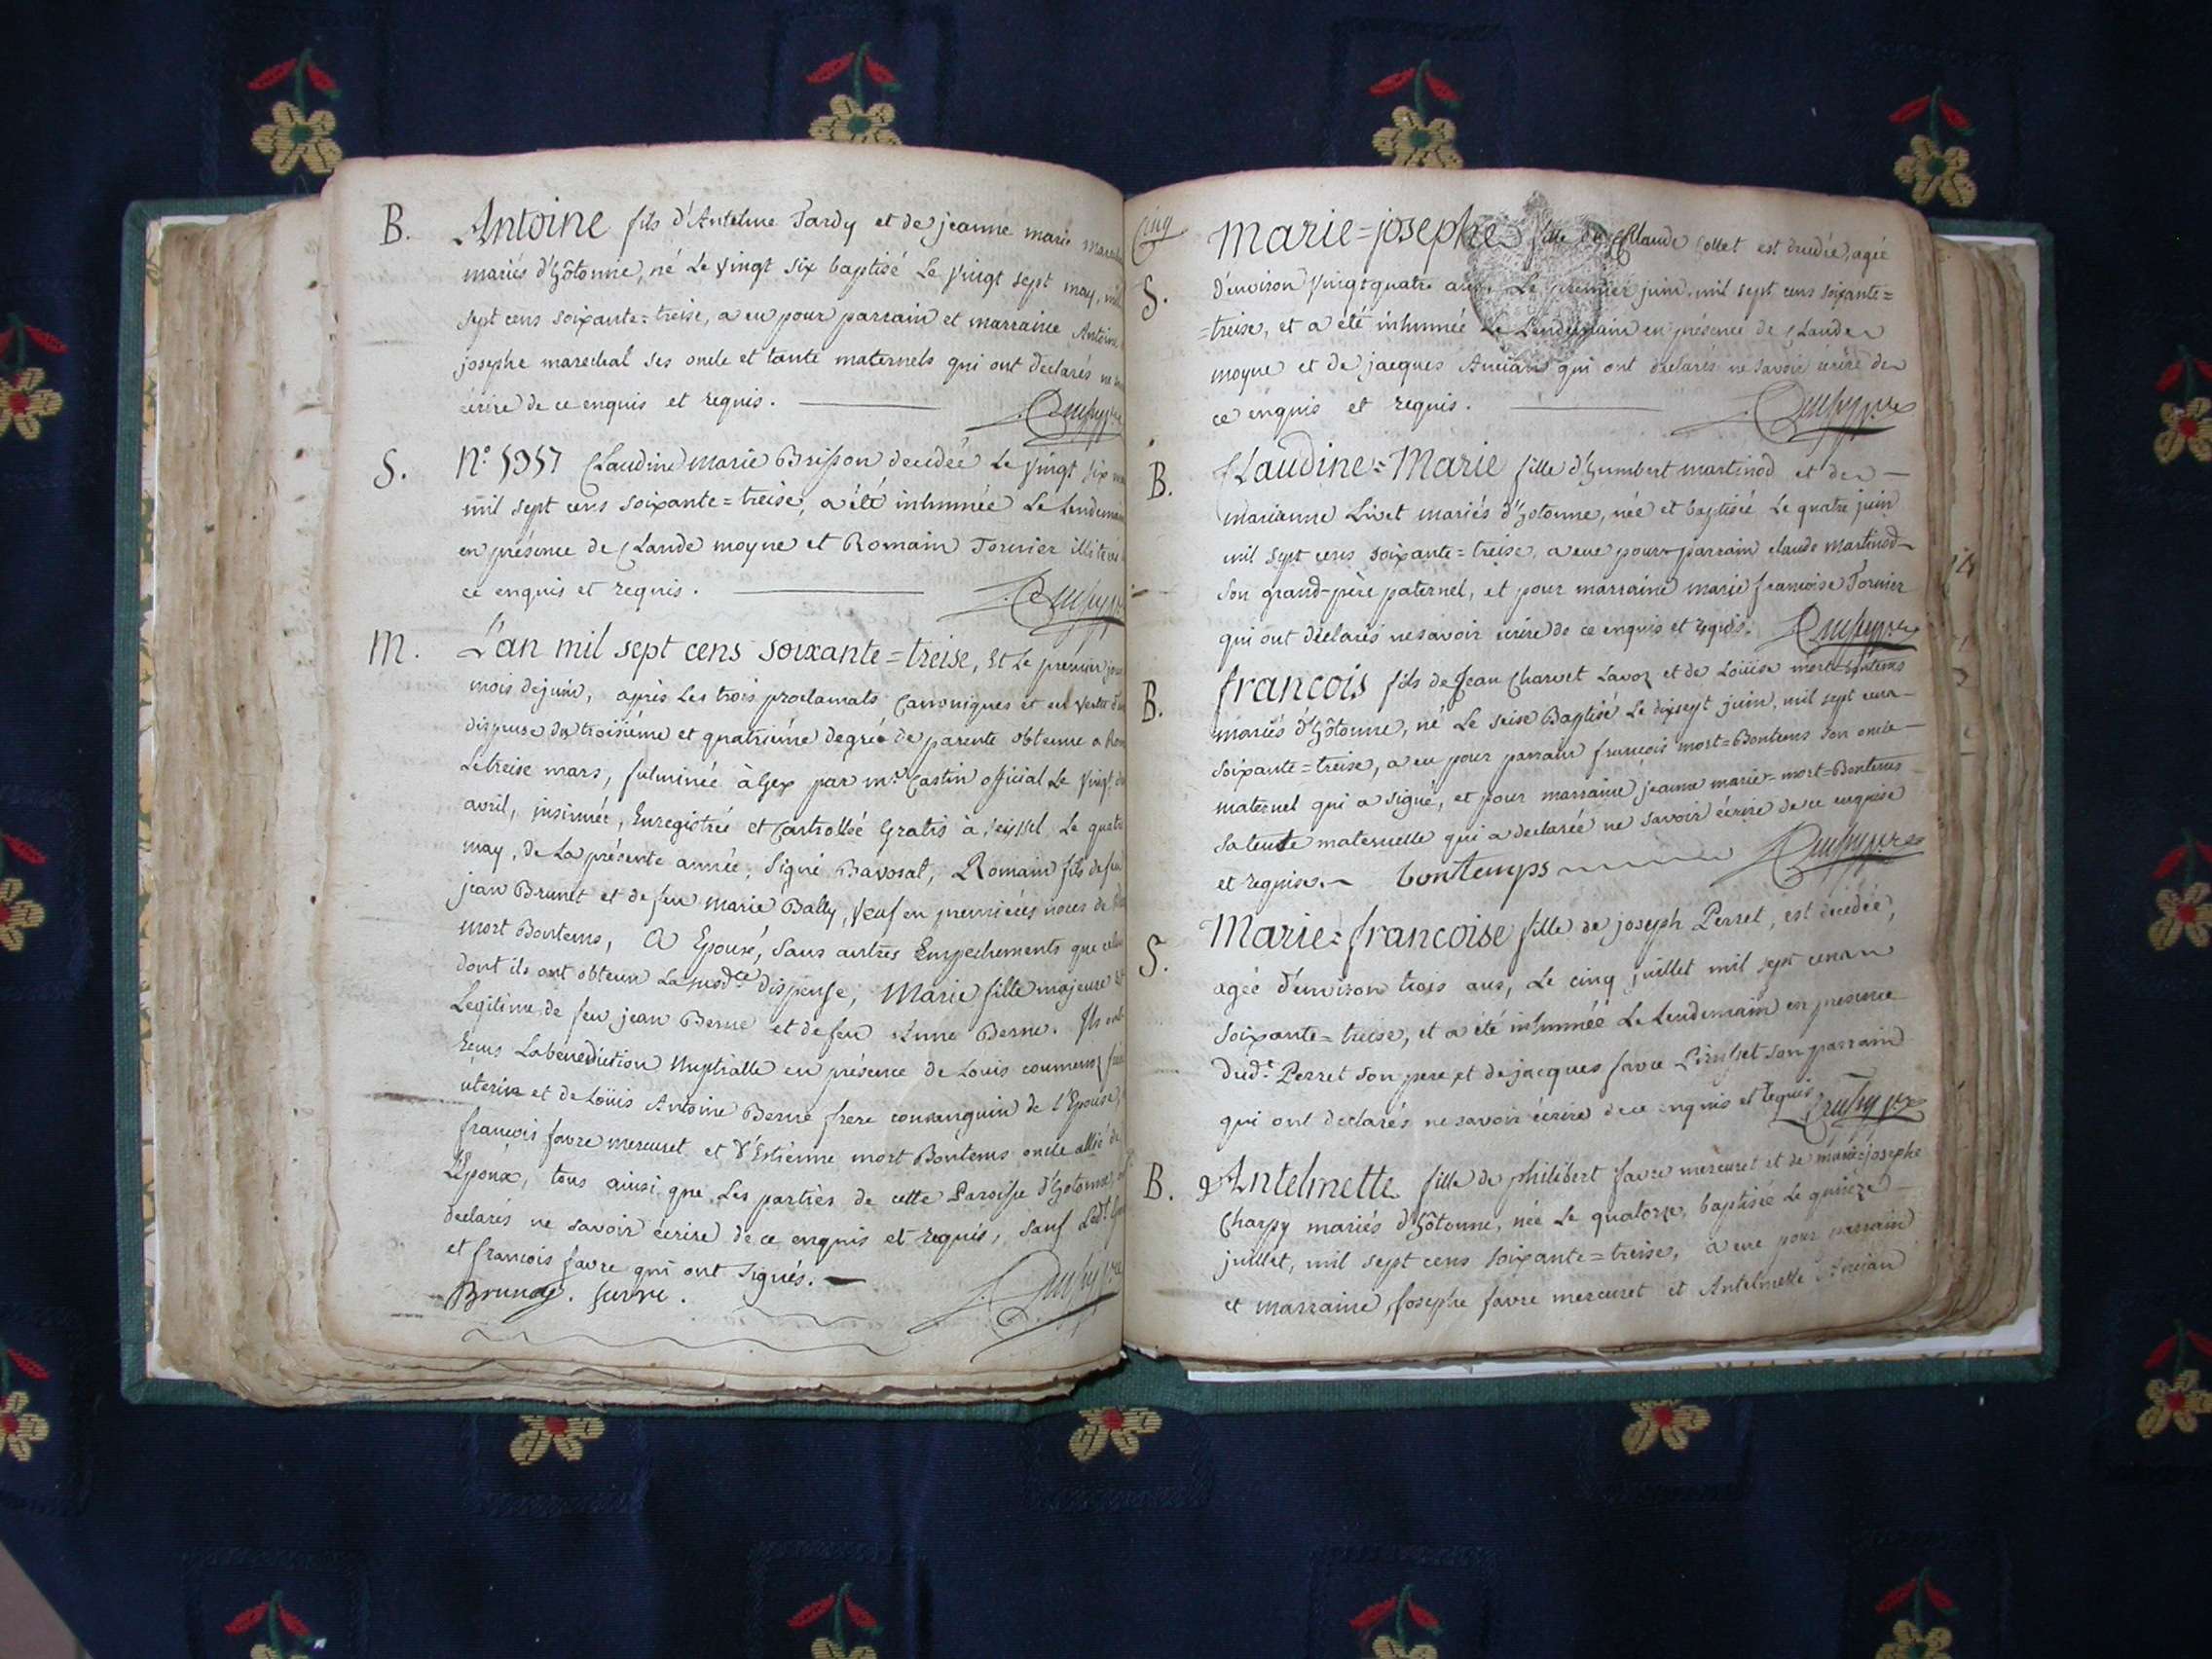 B. Antoine fils d'Antelme Tardy et de jeanne marie
mariés d'hôtonne, né Le vingt six baptisé Le vingt sept may, mil
sept cens soixante=treise, a eu pour parrain et marraine Antoine
josephe marechal ses oncle et tante maternels qui ont declarés ne
écrire de ce enquis et requis.
S. N° 5357 Claudine Marie Brisson decedée Le vingt six
mil sept cens soixante=treise, a été inhumée Le Lendemain
en présence de Claude moyne et Romain Tornier
ce enquis et requis.
M. L'an mil sept cens soixante=treise, Et Le premier jour
mois de juin, après Les trois proclamats Canoniques et en vertu
dispense du troisiéme et quatriéme degré de parenté obtenue a Rome
Le treise mars, fulminée à Gex par mr Castin official Le vingt
avril, insinuée, Enregistrée et Controllée Gratis à seyssel Le quatre
may, de La présente année, Signé Bavosat, Romain fils de feu
jean Brunet et de feu Marie Bally, veuf en premieres noces de
mort Bontems, a Epousé, Sans autres Empechements que celui
dont ils ont obtenu La susd.te dispense, Marie fille majeure et
Legitime de feu jean Berne et de feu Anne Berne. Ils ont
Reçus La bénédiction Nuptialle en présence de Louis
uterin et de Loüis Antoine Berne frere consanguin de l'Epouse,
francois favre mercuret et d'Estienne mort Bontems oncle allié de
L'Epoux, tous ainsi que Les parties de cette Paroisse d'hotonne,
declarés ne savoir écrire de ce enquis et requis, sauf Led.t
et francois favre qui ont signés.
Brunet. favre.
Cinq
S. Marie=josephe fille de Claude Collet est decedée, agée
d'environ vingt quatre ans, Le premier juin, mil sept cens soixante=
=treise, et a été inhumée Le Lendemain en présence de Claude
moyne et de jacques Ancian qui ont declarés ne savoir écrire de
ce enquis et requis.
B. Claudine=Marie fille d'humbert martinod et de
marianne Livet mariés d'hotonne, née et baptisée Le quatre juin
mil sept cens soixante=treise, a eue pour parrain claude martinod
son grand-père paternel, et pour marraine marie françoise Tornier
qui ont declarés ne savoir écrire de ce enquis et requis.
B. francois fils de Jean Charvet Lavoz et de Loüise mort=Bontems
mariés d'hôtonne, né Le seise Baptisé Le dixsept juin, mil sept cens
soixante=treise, a eu pour parrain françois mort=Bontems son oncle
maternel qui a signé, et pour marraine jeanne marie=mort=Bontems
sa tente maternelle qui a declarée ne savoir écrire de ce enquise
et requise. bontemps
S. Marie=francoise fille de joseph Perret, est decedée,
agée d'environ trois ans, Le cinq juillet mil sept cens
soixante=treise, et a été inhumée Le Lendemain en presence
dud.t Perret son pere et de jacques favre son parrain
qui ont declarés ne savoir écrire de ce enquis et requis
B. Antelmette fille de philibert favre mercuret et de marie=josephe
Charpy mariés d'hôtonne, née Le quatorze, baptisée Le quinze
juillet, mil sept cens soixante=treise, a eue pour parrain
et marraine, Josephe favre mercuret et Antelmette Ancian